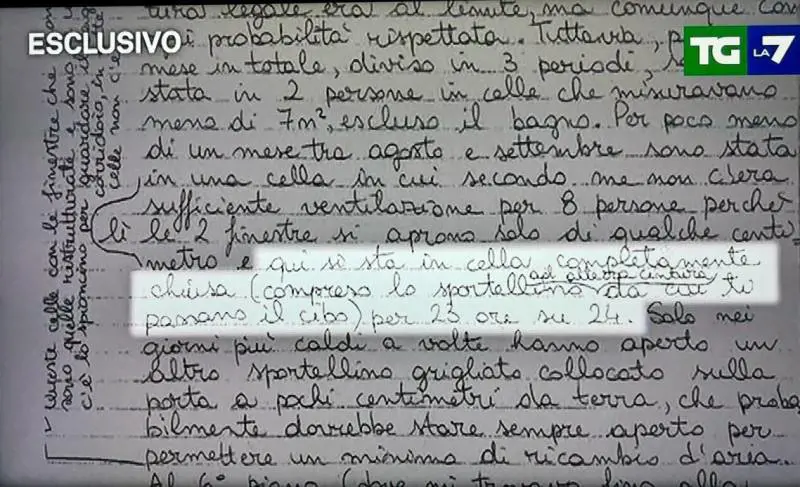 ESCLUSIVO
TG LA7
tura legale era al limite, ma comunque con
probabilità rispettata. Tuttavia, p
mese in totale, diviso in 3 periodi, s
stata in 2 persone in celle che misuravano
meno di 7m², escluso il bagno. Per poco meno
di un mese tra agosto e settembre sono stata
in una cella in cui secondo me non c'era
sufficiente ventilazione per 8 persone perché
lì le 2 finestre si aprono solo di qualche centi-
metro e qui si sta in cella completamente
ad altezza cintura
chiusa (compreso lo sportellino da cui ti
passano il cibo) per 23 ore su 24. Solo nei
giorni più caldi a volte hanno aperto un
altro sportellino grigliato collocato sulla
porta a pochi centimetri da terra, che proba
bilmente dovrebbe stare sempre aperto per
permettere un minimo di ricambio d'aria.
Al 6° piano (dove mi trovavo fino alla
queste celle con le finestre che
sono quelle ristrutturate e sono
c'è lo spioncino per guardare il
corridoio, in
celle non c'è